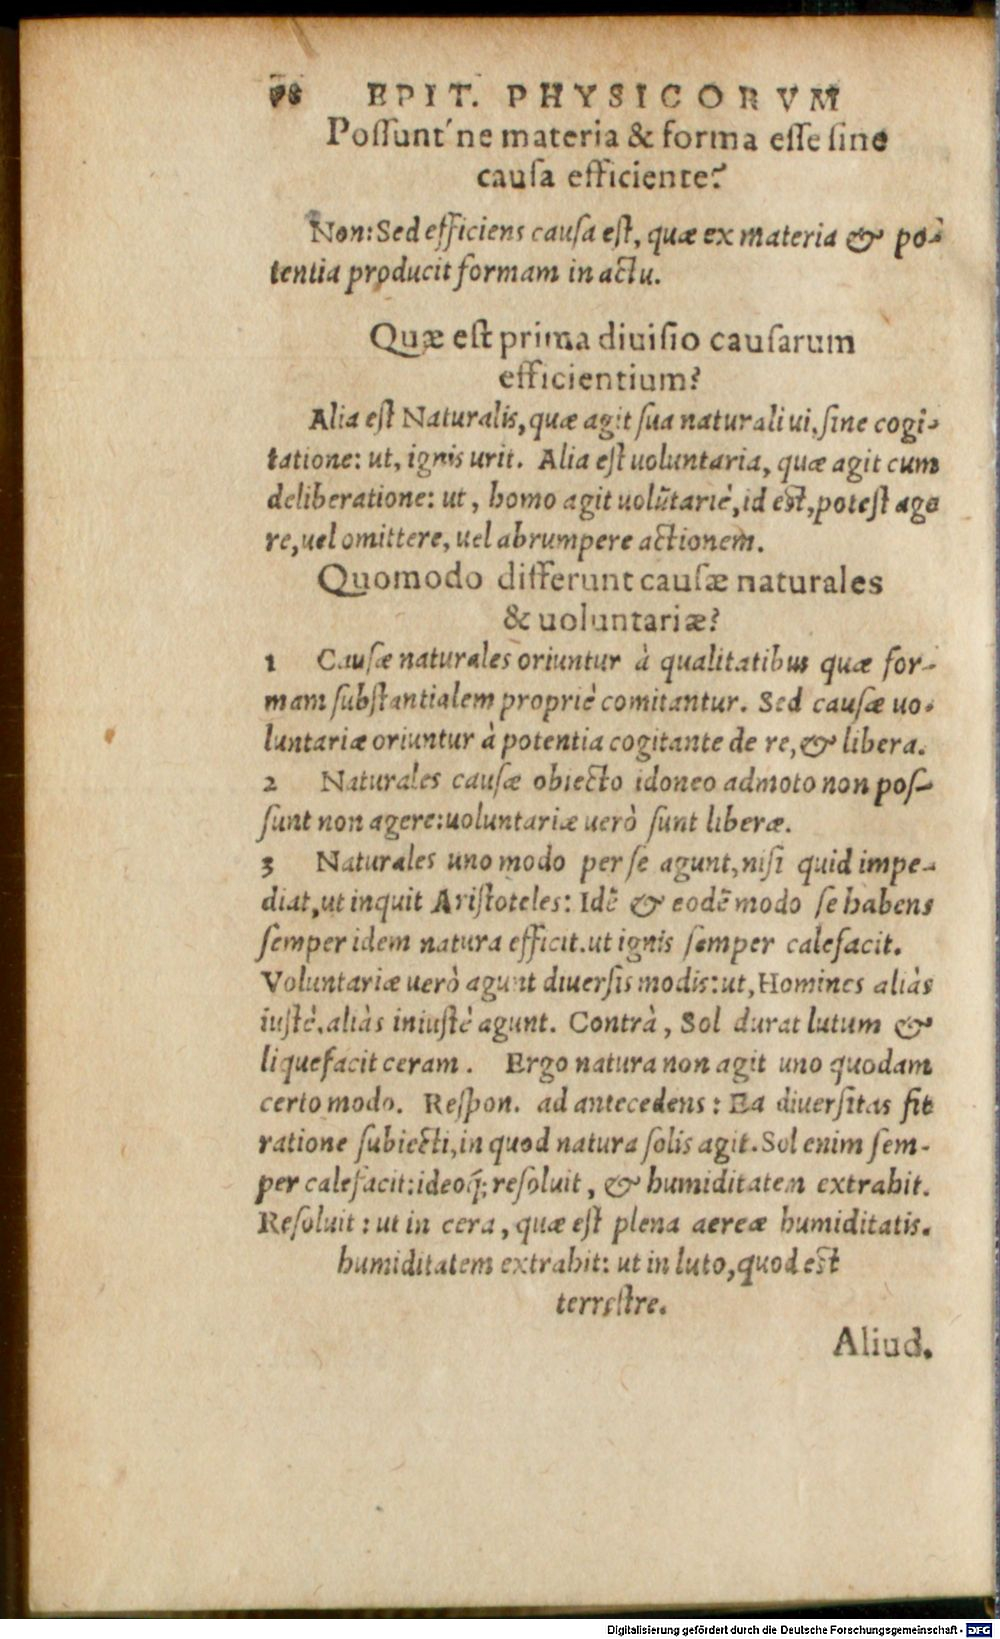 98 EPIT. PHYSICORVM
Poſſunt'ne materia & forma eſſe ſine
cauſa efficiente?
Non: Sed efficiens cauſa eſt, quæ ex materia & po-
tentia producit formam in actu.
Quæ eſt prima diuiſio cauſarum
efficientium?
Alia eſt Naturalis, quæ agit ſua naturali ui, ſine cogi-
tatione: ut, ignis urit. Alia eſt uoluntaria, quæ agit cum
deliberatione: ut, homo agit uolūtariè, id eſt, poteſt age
re, uel omittere, uel abrumpere actionem.
Quomodo differunt cauſæ naturales
& uoluntariæ?
1 Cauſæ naturales oriuntur à qualitatibus quæ for-
mam ſubſtantialem propriè comitantur. Sed cauſæ uo-
luntariæ oriuntur à potentia cogitante de re, & libera.
2 Naturales cauſæ obiecto idoneo admoto non poſ-
ſunt non agere: uoluntariæ uerò ſunt liberæ.
3 Naturales uno modo per ſe agunt, niſi quid impe-
diat, ut inquit Ariſtoteles: Idē & eodē modo ſe habens
ſemper idem natura efficit. ut ignis ſemper calefacit.
Voluntariæ uerò agunt diuerſis modis: ut, Homines aliàs
iuſtè, aliàs iniuſtè agunt. Contrà, Sol durat lutum &
liquefacit ceram. Ergo natura non agit uno quodam
certo modo. Reſpon. ad antecedens: Ea diuerſitas fit
ratione ſubiecti, in quod natura ſolis agit. Sol enim ſem-
per calefacit: ideoq́; reſoluit, & humiditatem extrahit.
Reſoluit: ut in cera, quæ eſt plena aereæ humiditatis.
humiditatem extrahit: ut in luto, quod eſt
terreſtre.
Aliud.
Digitalisierung gefördert durch die Deutsche Forschungsgemeinschaft - DFG